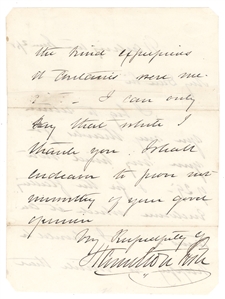 the kind expressions
it contains were me
I can only
say that while I
thank you I shall
endeavor to prove not
unworthy of your good
opinion
Very Respectfully
Hamilton Fish